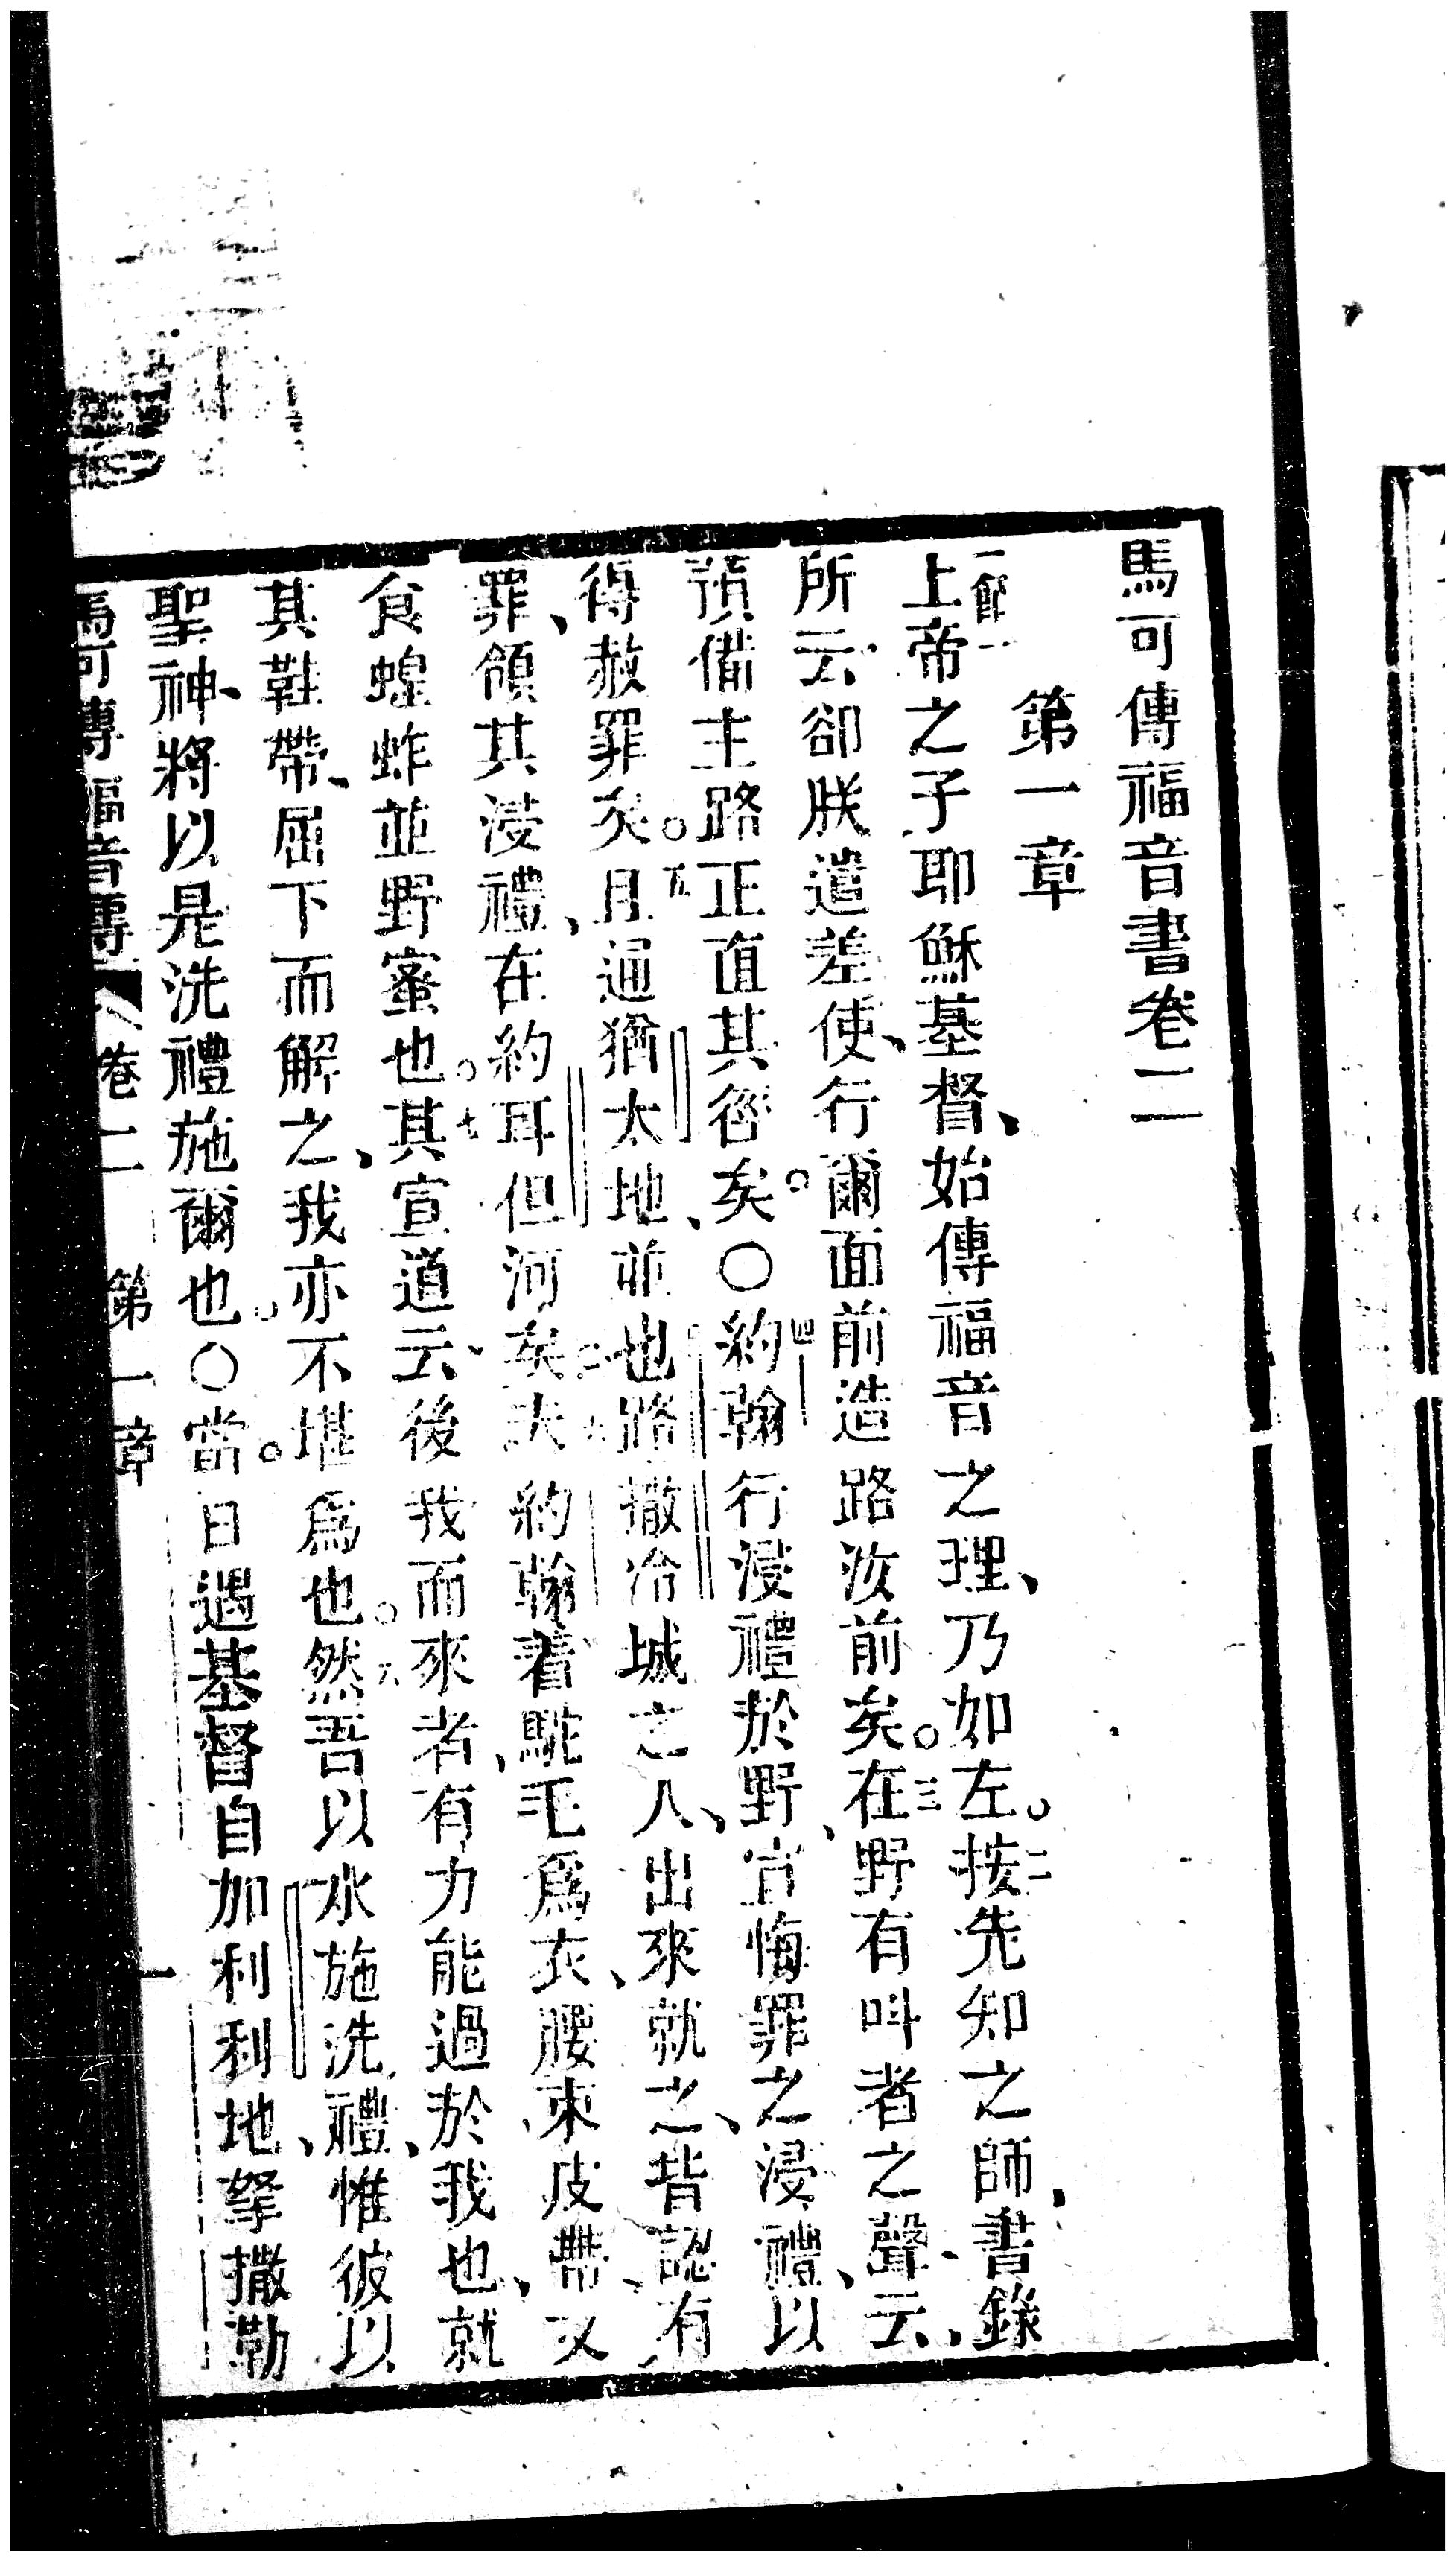 馬可傳福音書卷二
第一章
一節 上帝之子耶穌基督、始傳福音之理、乃如左。二按先知之師、書錄
所云、卻朕遣差使、行爾面前造路汝前矣。三在野有叫者之聲云、
預備主路正直其徑矣。○四約翰行浸禮於野、宣悔罪之浸禮、以
得赦罪矣。五且通猶太地、並也路撒冷城之人、出來就之、皆認有
罪、領其浸禮、在約耳但河矣。六夫約翰着駝毛爲衣、腰束皮帶、又
食蝗蚱並野蜜也。七其宣道云、後我而來者、有力能過於我也、就
其鞋帶、屈下而解之、我亦不堪爲也。八然吾以水施洗禮、惟彼以
聖神、將以是洗禮施爾也。○當日遇基督自加利利地、拏撒勒
馬可傳福音傳 卷二 第一章 一